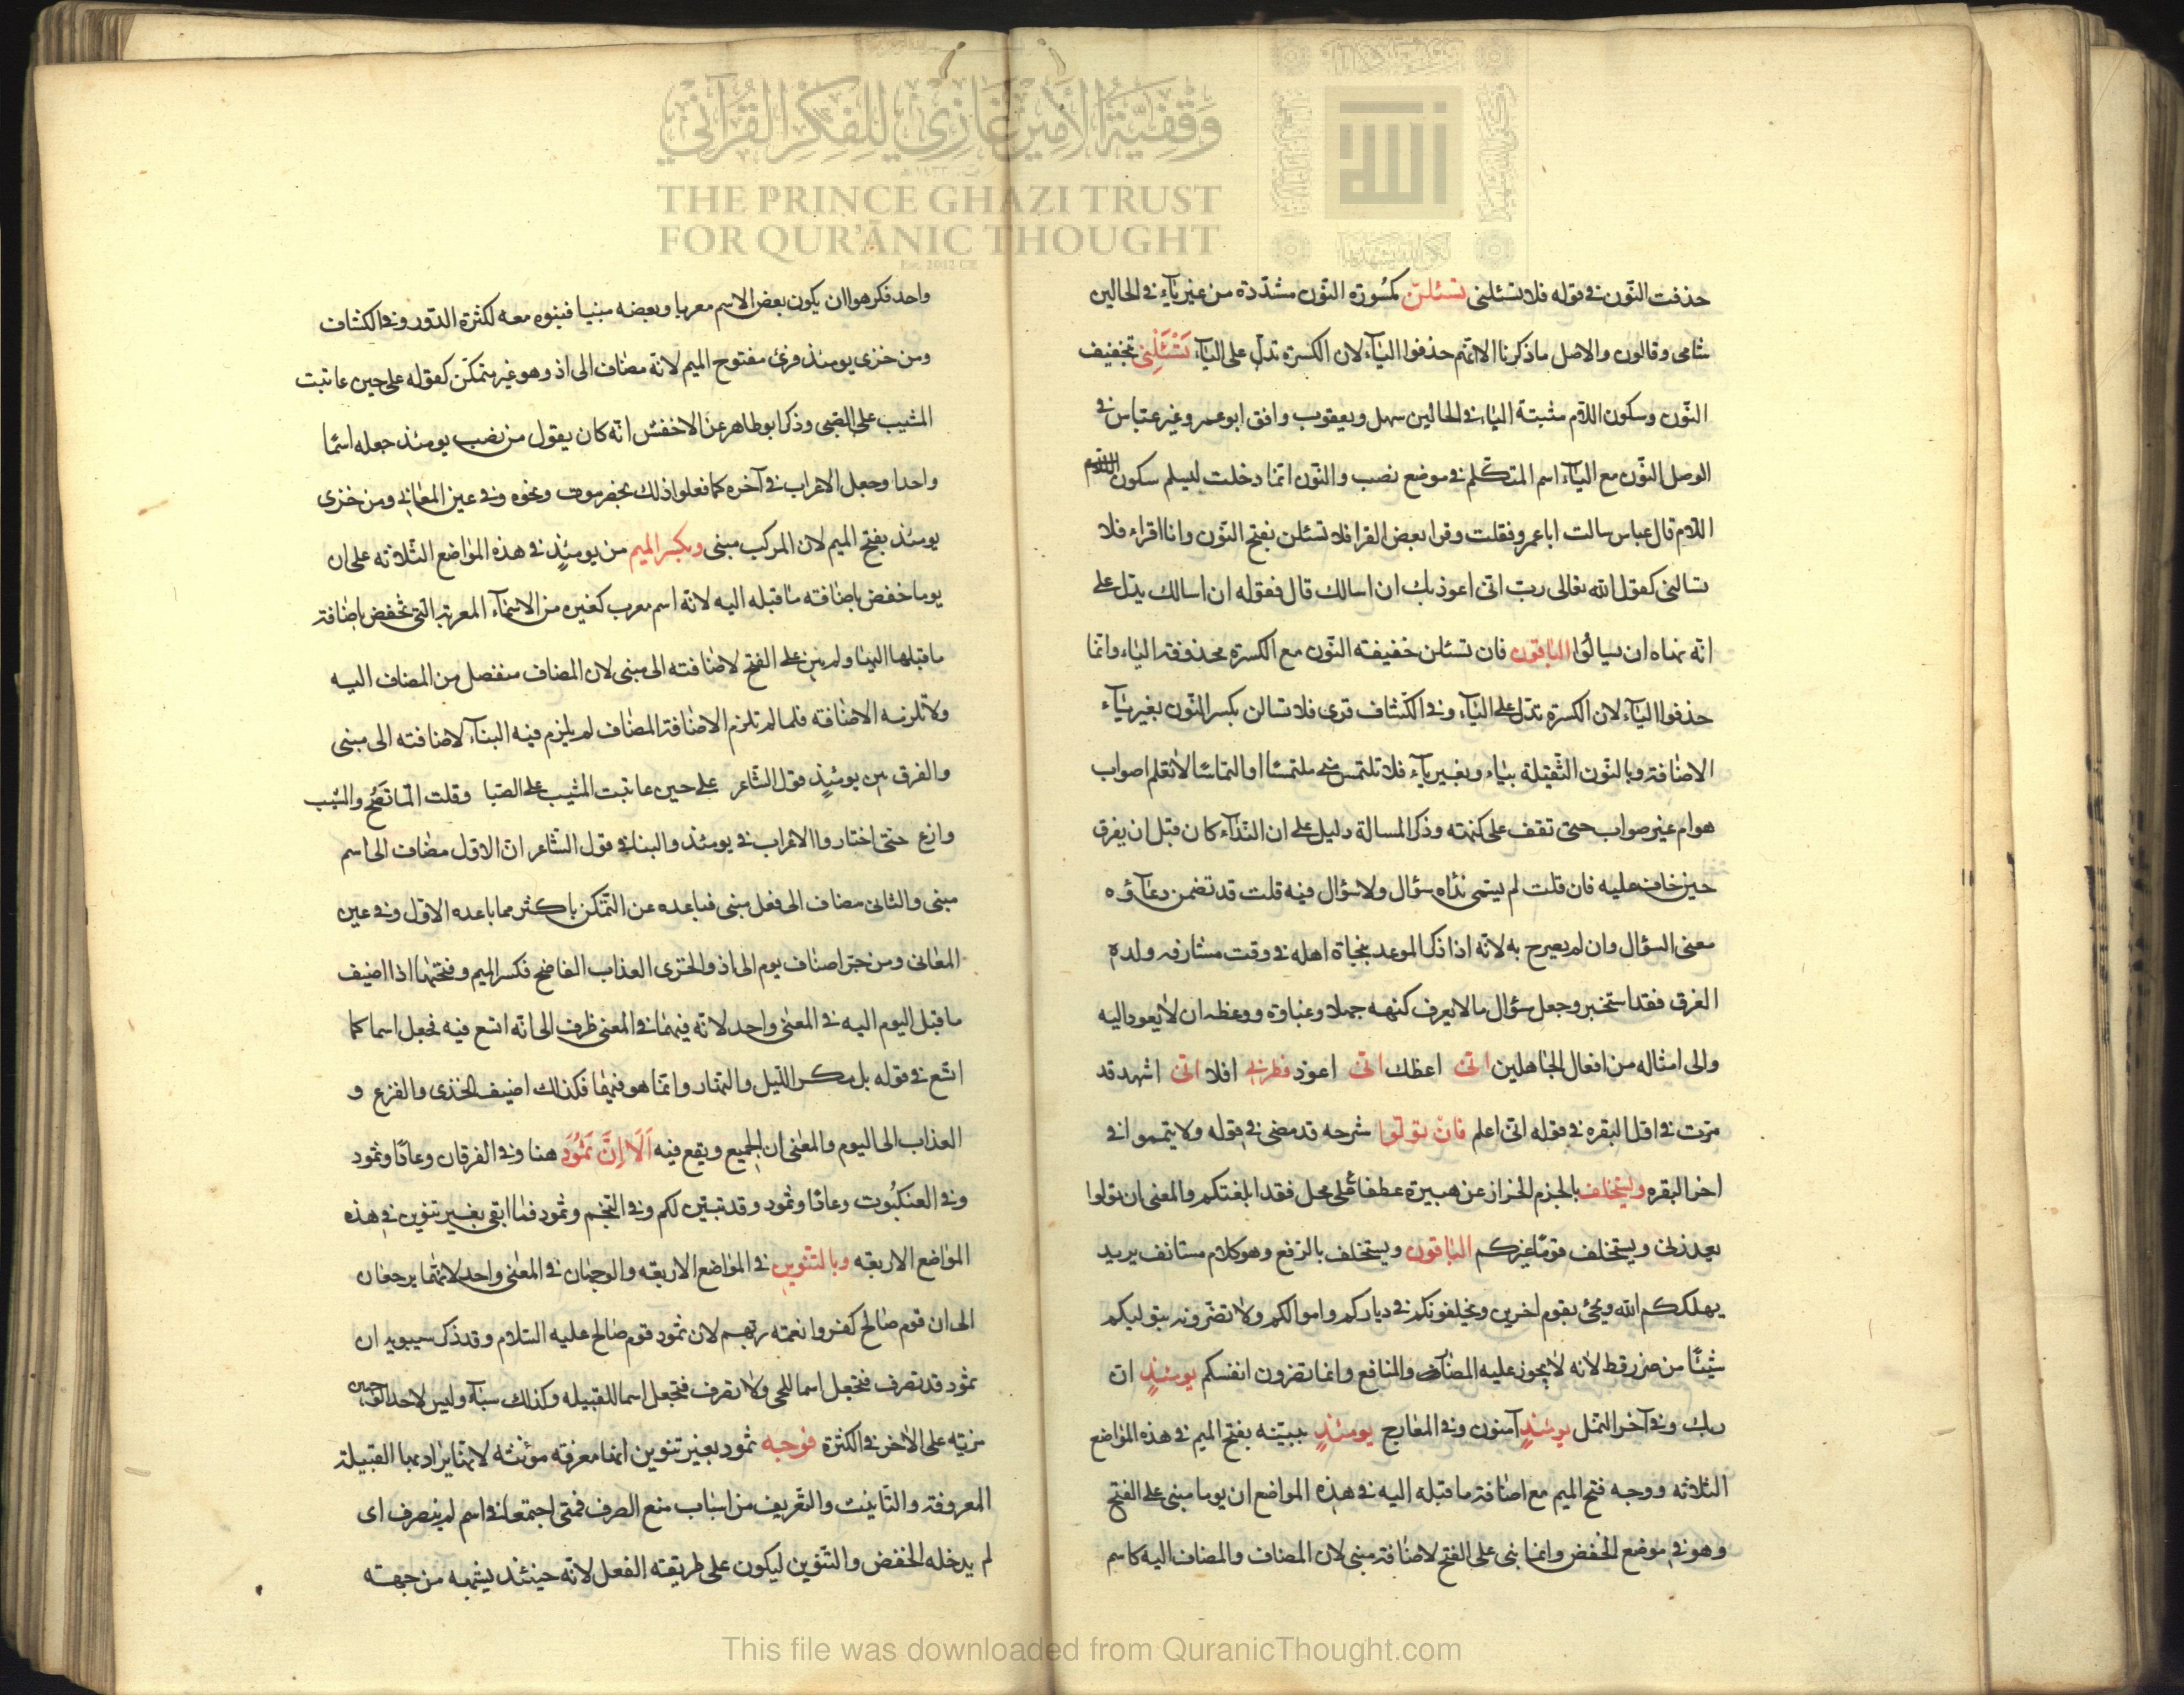 وقفية الأمير غازي للفكر القرآني
THE PRINCE GHAZI TRUST
FOR QUR'ĀNIC THOUGHT
حذفت النّون فى قوله فلا تسئلنى تسئلنّ مكسورة النّون مشدّدة من غير يآء فى الحالين
شامى وقالون والاصل ما ذكرنا الا انّهم حذفوا اليآء لان الكسرة تدل على اليآء تَسْئَلْنِى بتخفيف
النّون وسكون اللام مثبتة الياء فى الحالين سهل ويعقوب وافق ابو عمرو غير عبّاس فى
الوصل النّون مع اليآء اسم المتكّلم فى موضع نصب والنّون انّما دخلت ليسلم سكون
اللام قال عباس سالت ابا عمرو فقلت وقرا بعض القرا فلا تسئلن بفتح النّون وانا اقراء فلا
تسالنى كقول الله تعالى ربّ انّى اعوذ بك ان اسالك قال فقوله ان اسالك يدّل على
انّه نهاه ان يسالوا الباقون فان تسئلن خفيفته النّون مع الكسرة محذوفة الياء وانّما
حذفوا اليآء لان الكسرة تدّل على اليآء وفى الكشاف قرى فلا تسالن بكسر النّون بغير يآء
الاضافة وبالنّون الثّقيلة بياء وبغير يآء فلا تلتمس منى ملتمسا او التماسا لا تعلم اصواب
هو ام غير صواب حتى تقف على كنهه وذكر المسالة دليل على ان النّدآء كان قبل ان يغرق
حين خاف عليه فان قلت لم يسمى ندآه سؤال ولا سؤال فيه قلت قد تضمن دعآؤه
معنى السؤال وان لم يصرح به لانّه اذا ذكر الموعد بنجاة اهله فى وقت مشارفه ولده
الغرق فقد استخبر وجعل سؤال ما لا يعرف كنهه جهلا وغباوة ووعظه ان لا يعود اليه
والى امثاله من افعال الجاهلين انّى اعظك انّى اعوذ فطرنى افلا انّى اشهد قد
مرّت فى اوّل البقره فى قوله انّى اعلم فان تولّوا شرحه قد مضى فى قوله ولا تيمموا فى
اخر البقره ويستخلف بالجزم الخزاز عن هبيرة عطفا على محل فقد ابلغتكم والمعنى ان تولوا
يعذرنى ويستخلف قوما غيركم الباقون ويستخلف بالرّفع وهو كلام مستانف يريد
يهلككم الله ويجئ بقوم اخرين ويخلفونكم فى دياركم واموالكم ولا تضرّونه بتوليكم
شيئًا من ضرر قط لانه لا يجوز عليه المضار والمنافع وانما تضرون انفسكم يومئذٍ انّ
ربك وفى آخر النّمل يومئذٍ آمنون وفى المعارج يومئذٍ ببنيه بفتح الميم فى هذه المواضع
الثلاثه ووجه فتح الميم مع اضافة ما قبله اليه فى هذه المواضع ان يوما مبنى على الفتح
وهو فى موضع الخفض وانما بنى على الفتح لاضافته مبنى لان المضاف والمضاف اليه كاسم
واحد فكرهوا ان يكون بعض الاسم معربا وبعضه مبنيا فبنوه معه لكثرة الدّور وفى الكشاف
ومن خزى يومئذ قرئ مفتوح الميم لانّه مضاف الى اذ وهو غير متمكّن كقوله على حين عاتبت
المشيب على الصّبى وذكر ابو طاهر عن الاخفش انّه كان يقول من نصب يومئذ جعله اسما
واحدا وجعل الاعراب فى آخره كما فعلوا ذلك بحضر موت ونحوه وفى عين المعانى ومن خزى
يومئذ بفتح الميم لان المركب مبنى وبكسر الميم من يومئذٍ فى هذه المواضع الثلاثه على ان
يوما خفض باضافته ما قبله اليه لانّه اسم معرب كغيره من الاسمآء المعربة التى تخفض باضافة
ما قبلها اليها ولم يبن على الفتح لاضافته الى مبنى لان المضاف منفصل من المضاف اليه
ولا تلزمه الاضافه فلما لم تلزم الاضافة المضاف لم يلزم فيه البنآء لاضافته الى مبنى
والفرق بين يومئذٍ وقول الشّاعر على حين عاتبت المشيب على الصّبا وقلت المّا تصح والشيب
وازع حتى اختاروا الاعراب فى يومئذ والبنا فى قول الشّاعر انّ الاوّل مضاف الى اسم
مبنى والثانى مضاف الى فعل مبنى فباعده عن التمّكن باكثر مما باعده الاوّل وفى عين
المعانى ومن جرّ اضاف يوم الى اذ والخزى العذاب الفاضح فكسر الميم وفتحها اذا اضيف
ما قبل اليوم اليه فى المعنى واحد لانّه فيهما فى المعنى ظرف الى انّه اتسع فيه فجعل اسما كما
اتّسع فى قوله بل مكر الليل والنّهار وانّما هو فيهما فكذلك اضيف الخذى والفزع و
العذاب الى اليوم والمعنى ان الجميع ويقع فيه اَلَا اِنَّ ثَمُودَ هنا وفى الفرقان وعادًا وثمود
وفى العنكبوت وعادًا وثمود وقد تبيّن لكم وفى النّجم وثمود فما ابقى بغير تنوين فى هذه
المواضع الاربعه وبالتّنوين فى المواضع الاربعه والوجهان فى المعنى واحد لانّهما يرجعان
الى ان قوم صالح كفروا نعمة ربّهم لان ثمود قوم صالح عليه السّلام وقد ذكر سيبويه ان
ثمود قد تصرف فتجعل اسما للحى ولا تصرف فتجعل اسما للقبيله وكذلك سبآء وليس لاحد الوجهين
مزيّه على الاخر فى الكثرة فوجه ثمود بغير تنوين انها معرفه مؤنثه لانّها يراد بها القبيلة
المعروفة والتّانيث والتعّريف من اسباب منع الصرف فمتى اجتمعا فى اسم لم ينصرف اى
لم يدخله الخفض والتّنوين ليكون على طريقته الفعل لانّه حينئذ يشبهه من جهته
This file was downloaded from QuranicThought.com